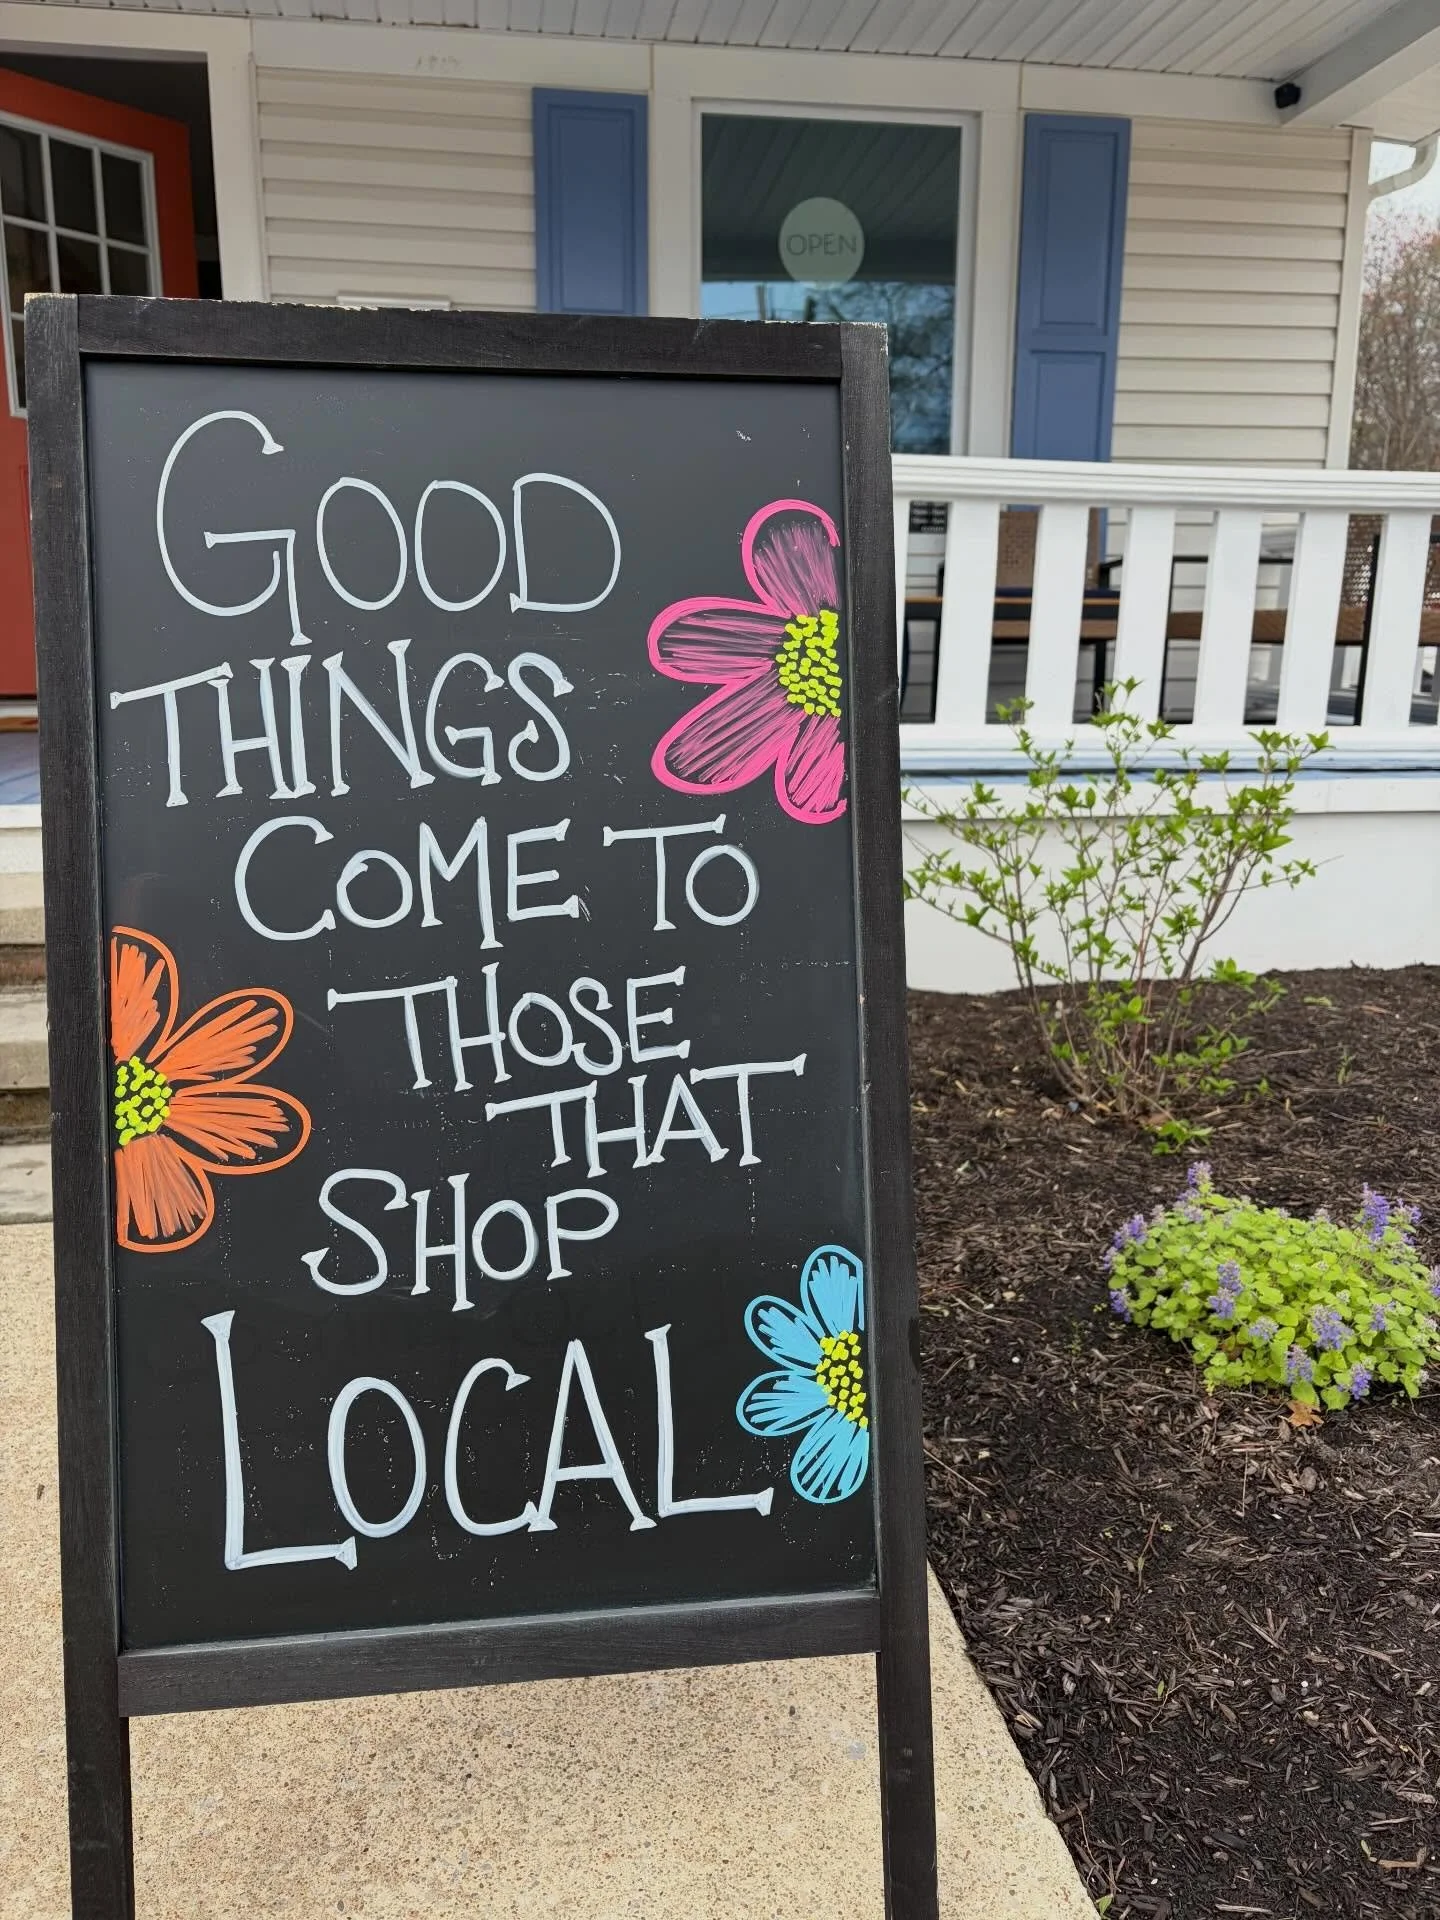 OPEN
GOOD
THINGS
COME TO
THOSE
THAT
SHOP
LOCAL